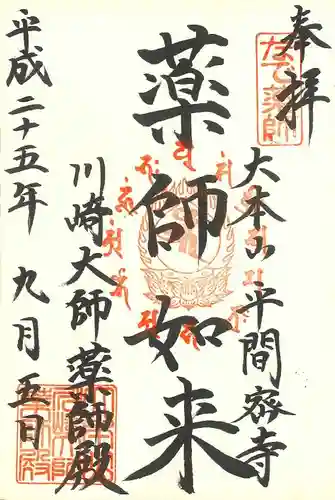 奉拝
なで薬師
大本山平間寺
薬師如来
川崎大師薬師殿
平成二十五年九月五日